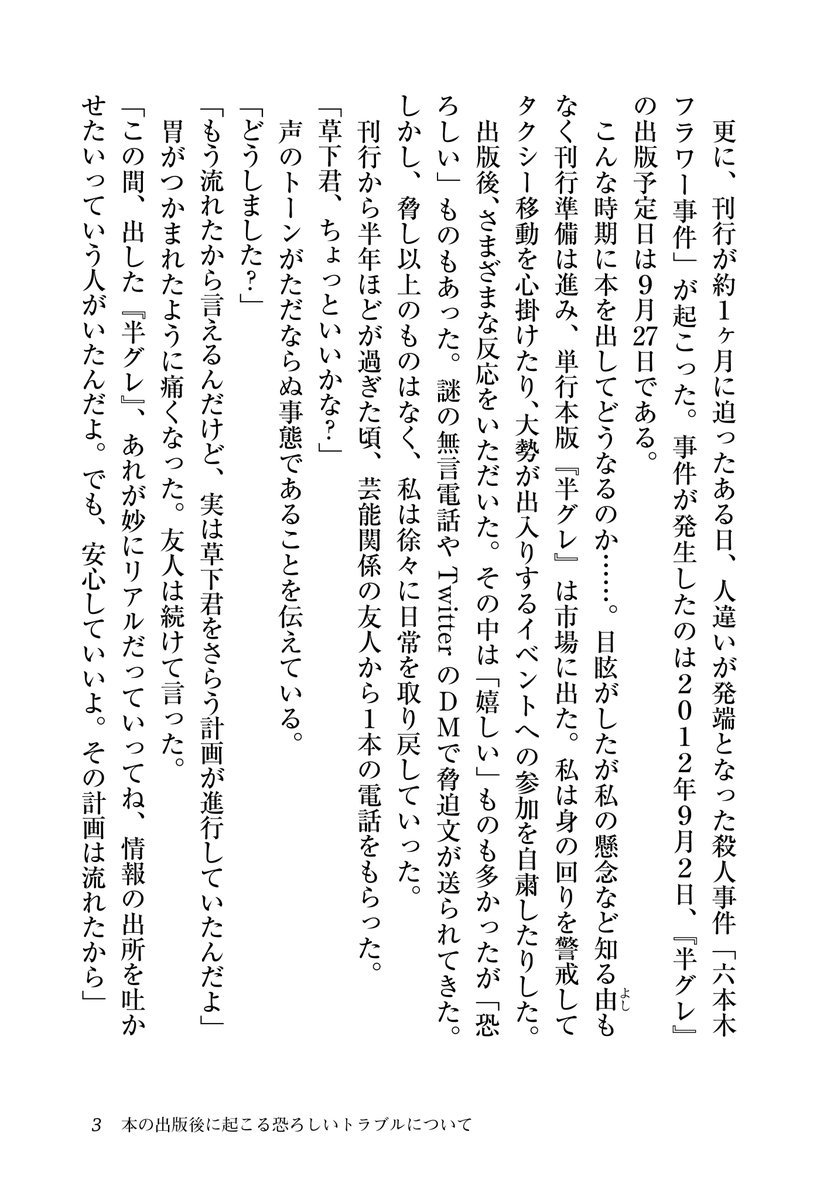 更に、刊行が約1ヶ月に迫ったある日、人違いが発端となった殺人事件「六本木
フラワー事件」が起こった。事件が発生したのは2012年9月2日、『半グレ』
の出版予定日は9月27日である。
こんな時期に本を出してどうなるのか……。目眩がしたが私の懸念など知る由も
よし
なく刊行準備は進み、単行本版『半グレ』は市場に出た。私は身の回りを警戒して
タクシー移動を心掛けたり、大勢が出入りするイベントへの参加を自粛したりした。
出版後、さまざまな反応をいただいた。その中は「嬉しい」ものも多かったが「恐
ろしい」ものもあった。謎の無言電話やTwitterのDMで脅迫文が送られてきた。
しかし、脅し以上のものはなく、私は徐々に日常を取り戻していった。
刊行から半年ほどが過ぎた頃、芸能関係の友人から1本の電話をもらった。
「草下君、ちょっといいかな?」
声のトーンがただならぬ事態であることを伝えている。
「どうしました?」
「もう流れたから言えるんだけど、実は草下君をさらう計画が進行していたんだよ」
胃がつかまれたように痛くなった。友人は続けて言った。
「この間、出した『半グレ』、あれが妙にリアルだっていってね、情報の出所を吐か
せたいっていう人がいたんだよ。でも、安心していいよ。その計画は流れたから」
3 本の出版後に起こる恐ろしいトラブルについて